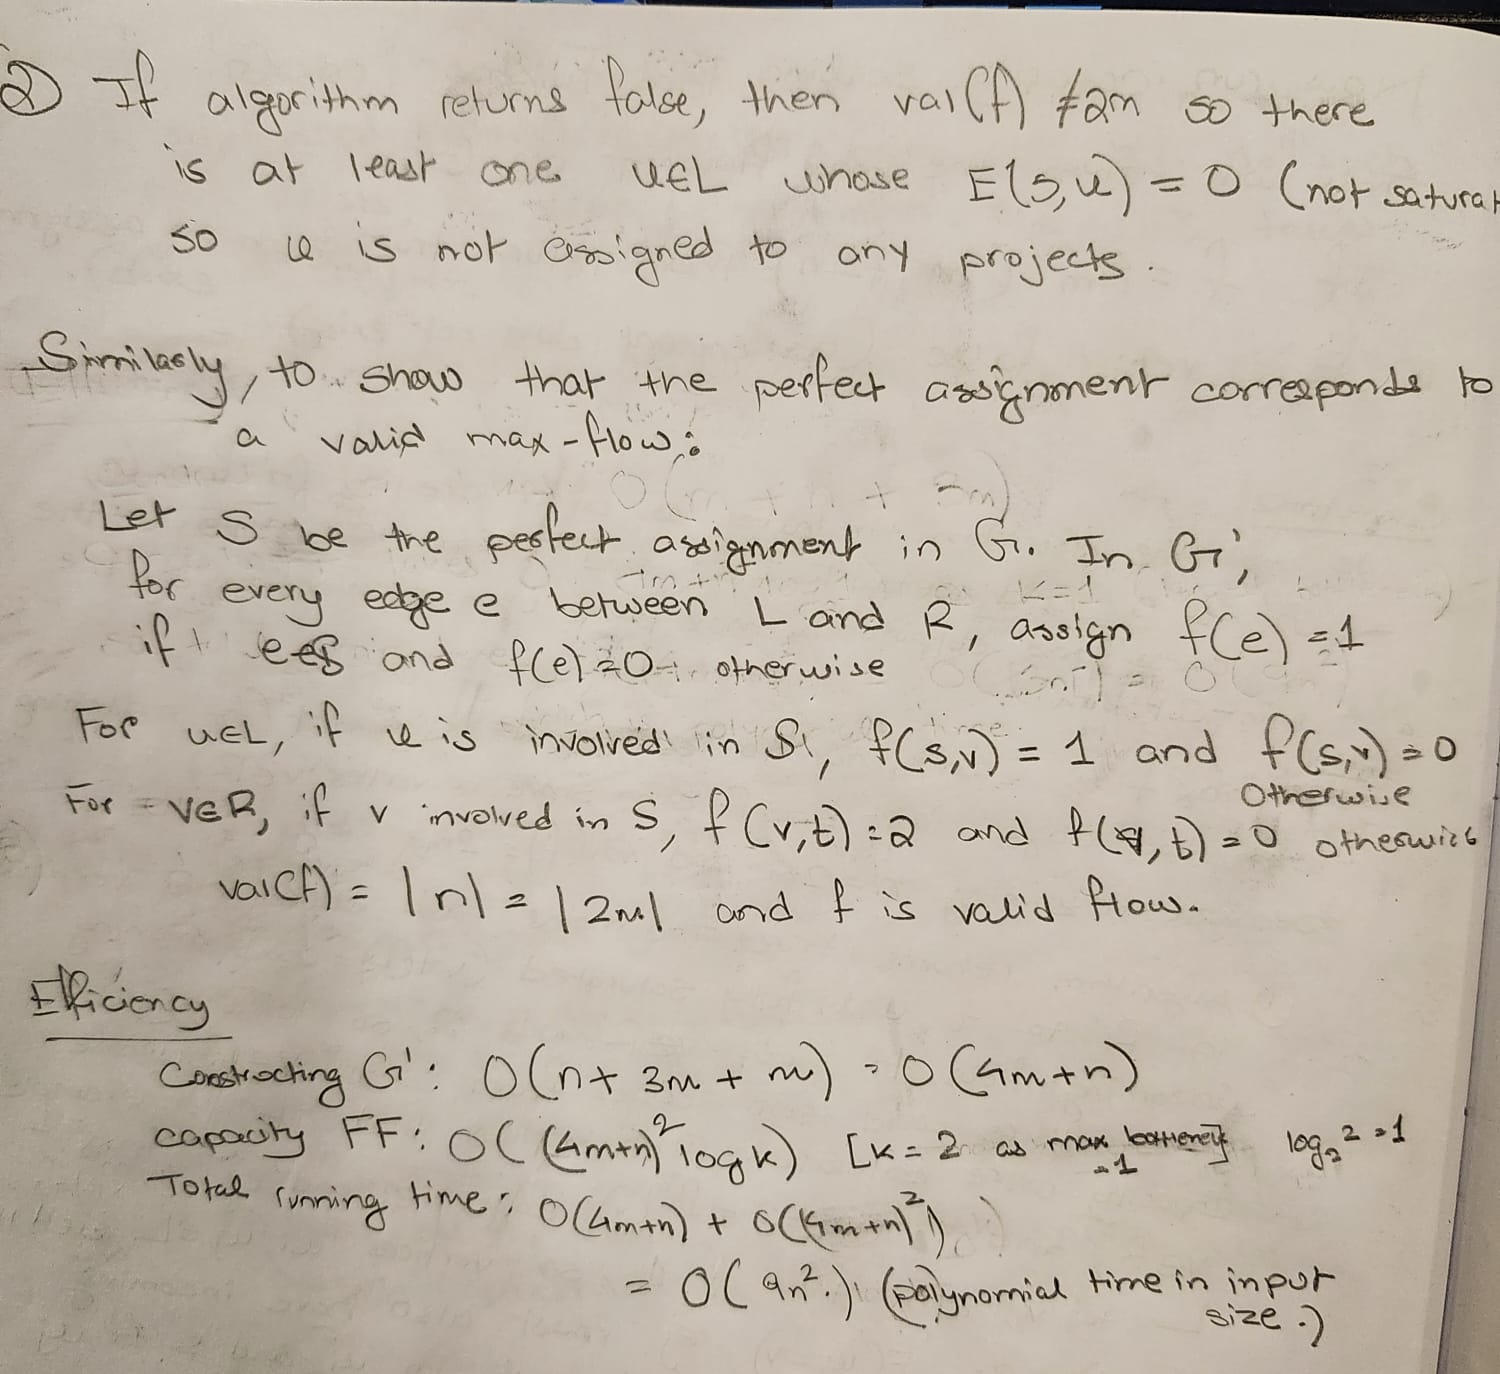 ② If algorithm returns false, then val(f) ≠ 2m so there
is at least one u∈L whose E(s,u) = 0 (not saturat
so u is not assigned to any projects.
Similarly, to show that the perfect assignment corresponds to
a valid max-flow:
Let S be the perfect assignment in G. In G',
for every edge e between L and R, assign f(e) = 1
if e∈S and f(e) = 0 otherwise
For u∈L, if u is involved in S, f(s,v) = 1 and f(s,v) = 0
otherwise
For v∈R, if v involved in S, f(v,t) = 2 and f(v,t) = 0 otherwise
val(f) = |n| = |2m| and f is valid flow.
Efficiency
Constructing G': O(n + 3m + m) = O(4m+n)
capacity FF: O((4m+n)² log k) [k = 2 as max log₂2 = 1
= 1
Total running time: O(4m+n) + O((4m+n)²)
= O(9n².) (polynomial time in input
size.)